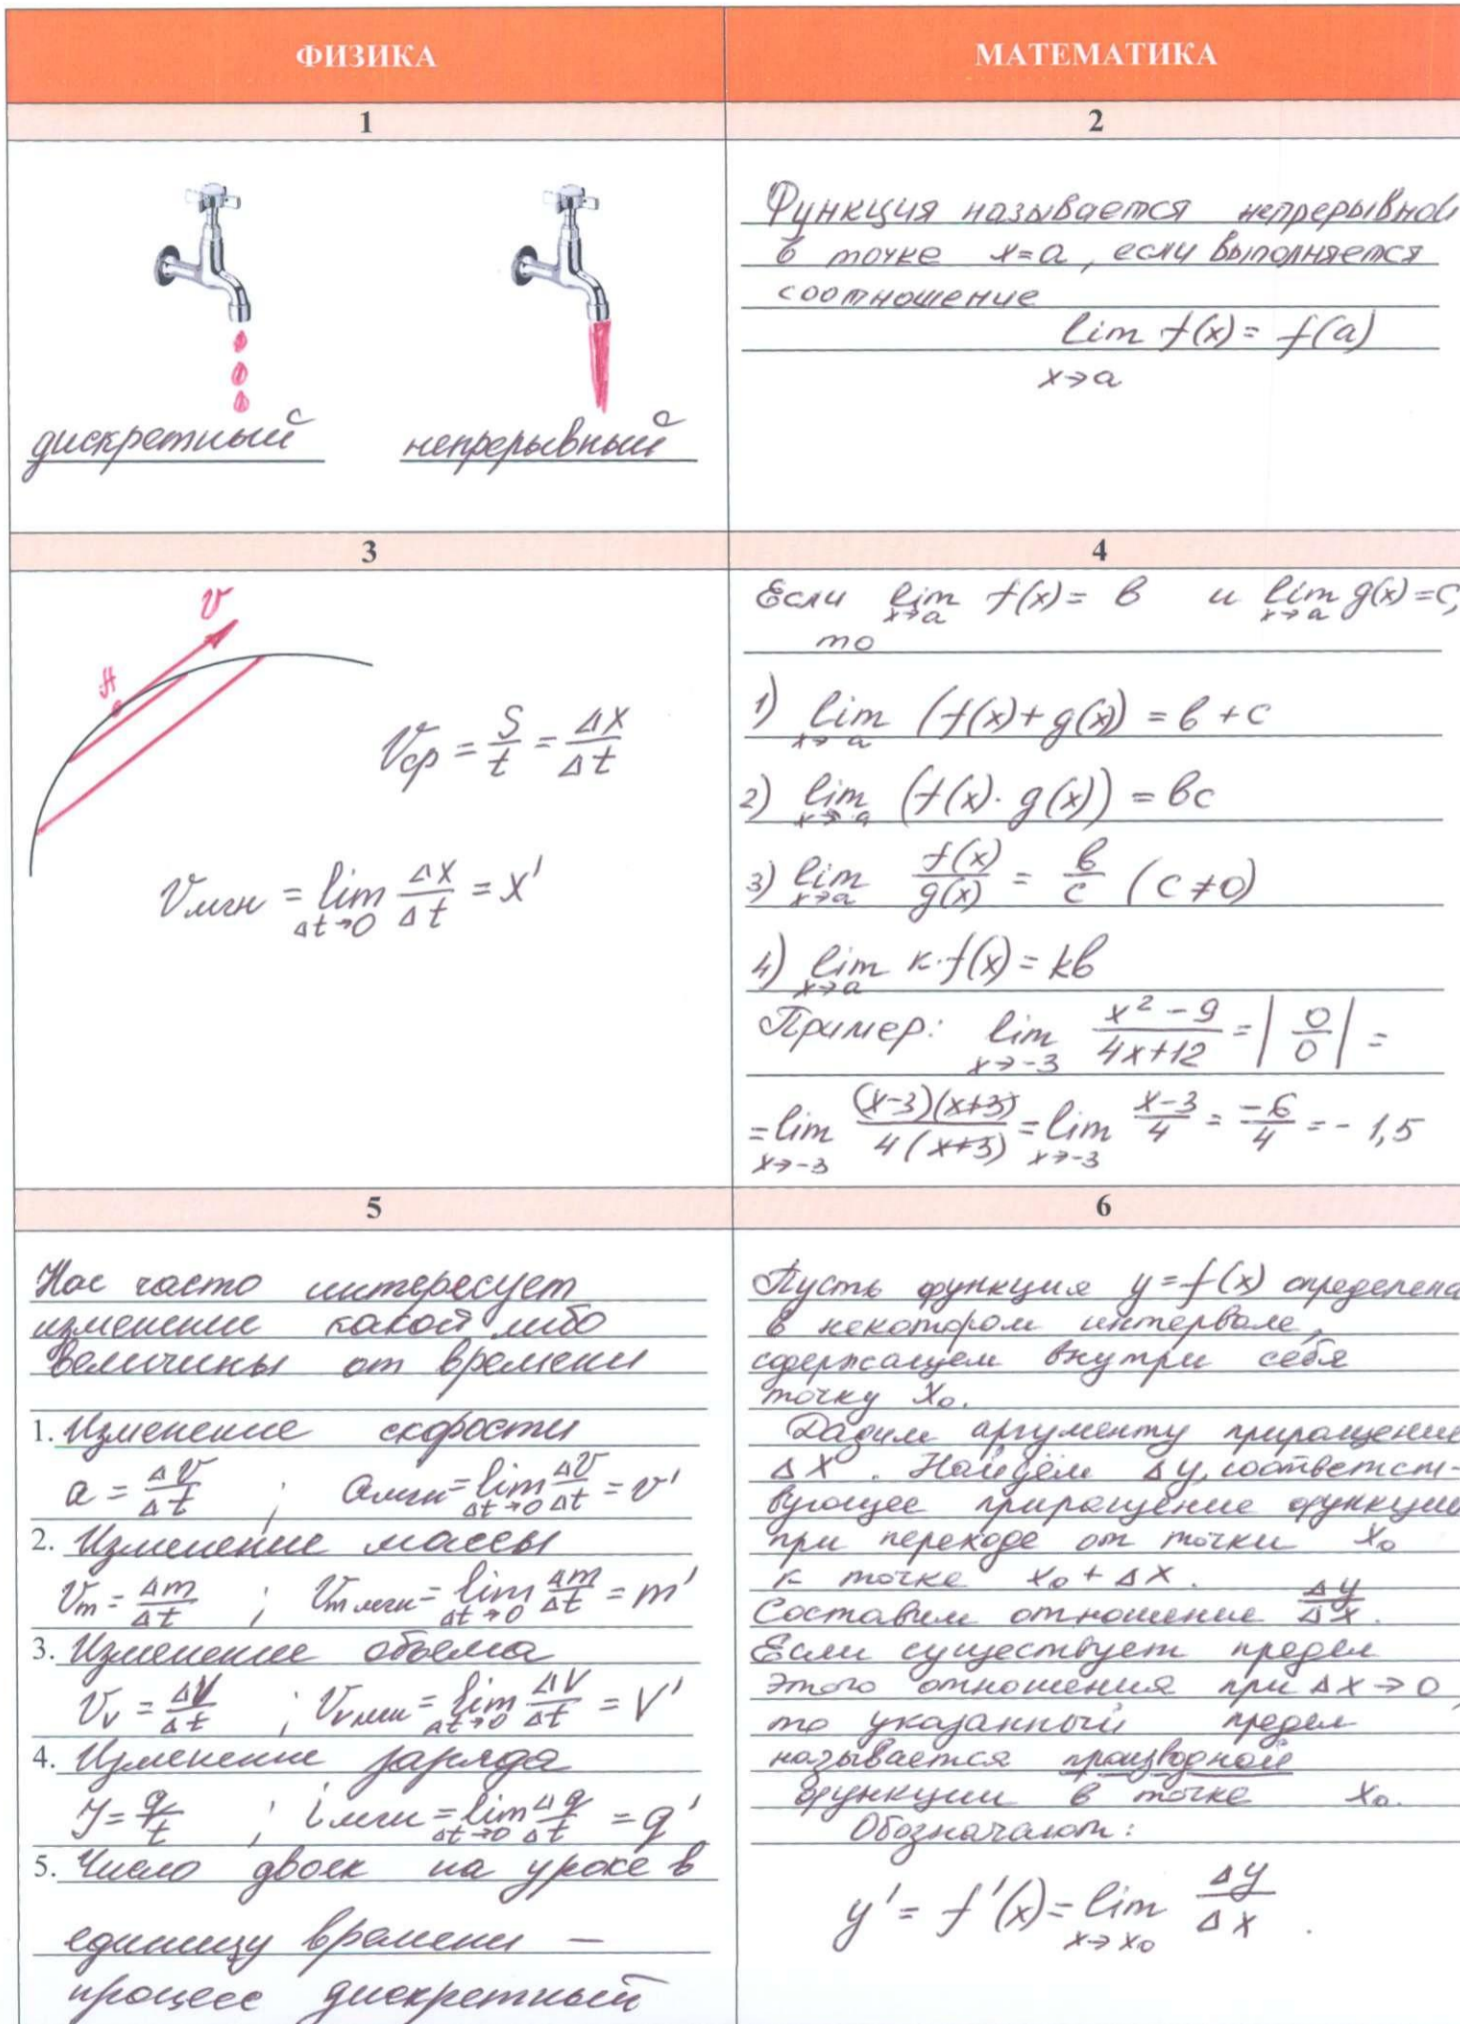 ФИЗИКА
МАТЕМАТИКА
1
2
дискретный
непрерывный
Функция называется непрерывной
в точке x=a, если выполняется
соотношение
lim f(x) = f(a)
x→a
3
4
v
A
Vср = S/t = Δx/Δt
Vмгн = lim Δx/Δt = x'
Δt→0
Если lim f(x) = в и lim g(x) = c,
x→a x→a
то
1) lim (f(x) + g(x)) = в + c
x→a
2) lim (f(x)·g(x)) = вc
x→a
3) lim f(x)/g(x) = в/c (c ≠ 0)
x→a
4) lim к·f(x) = kв
x→a
Пример: lim (x² - 9)/(4x+12) = |0/0| =
x→-3
= lim (x-3)(x+3)/4(x+3) = lim (x-3)/4 = -6/4 = -1,5
x→-3 x→-3
5
6
Нас часто интересует
изменение какой либо
величины от времени
1. Изменение скорости
a = Δv/Δt ; aмгн = lim Δv/Δt = v'
Δt→0
2. Изменение массы
Vm = Δm/Δt ; Vm мгн = lim Δm/Δt = m'
Δt→0
3. Изменение объема
Vv = ΔV/Δt ; Vv мгн = lim ΔV/Δt = V'
Δt→0
4. Изменение заряда
J = q/t ; iмгн = lim Δq/Δt = q'
Δt→0
5. Число двоек на уроке в
единицу времени —
процесс дискретный
Пусть функция y = f(x) определена
в некотором интервале,
содержащем внутри себя
точку x₀.
Дадим аргументу приращение
Δx. Найдём Δy, соответст-
вующее приращение функции
при переходе от точки x₀
к точке x₀ + Δx.
Составим отношение Δy/Δx.
Если существует предел
этого отношения при Δx → 0,
то указанный предел
называется производной
функции в точке x₀.
Обозначают:
y' = f'(x) = lim Δy/Δx.
x→x₀